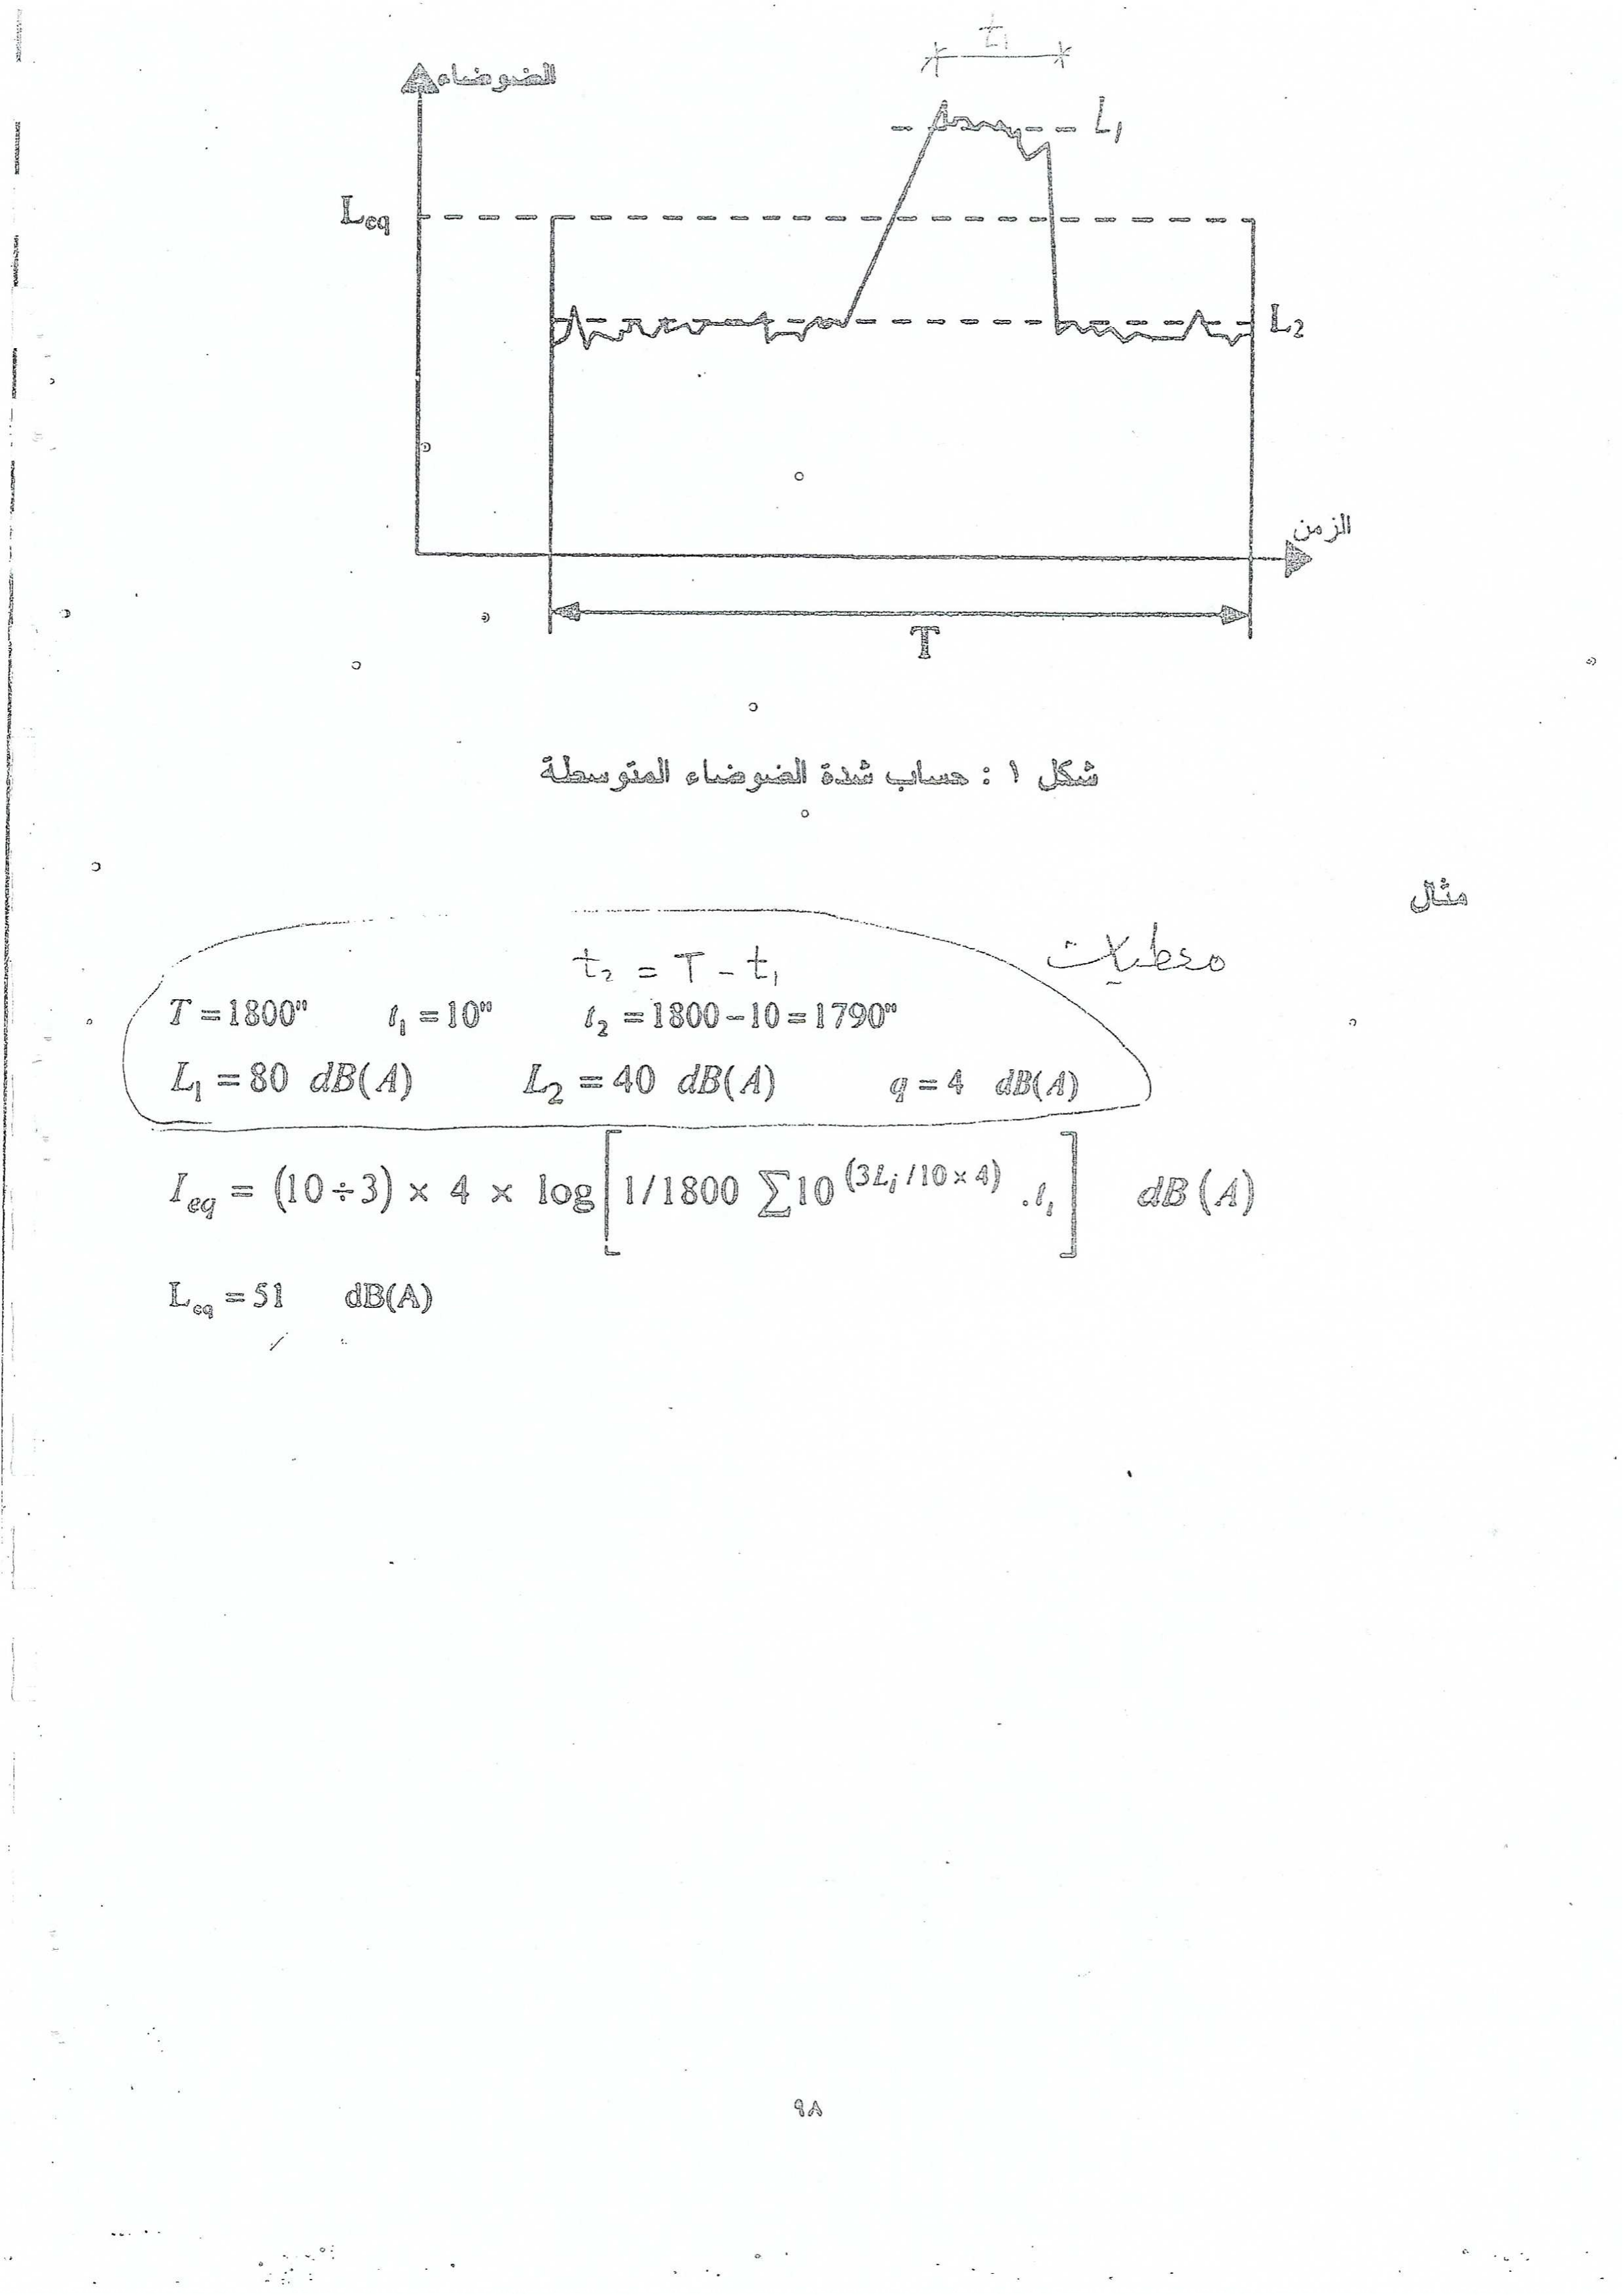 t₁
الضوضاء
L₁
Leq
L₂
الزمن
T
شكل ١ : حساب شدة الضوضاء المتوسطة
مثال
معطيات
t₂ = T - t₁
T = 1800" t₁ = 10" t₂ = 1800 - 10 = 1790"
L₁ = 80 dB(A) L₂ = 40 dB(A) q = 4 dB(A)
Ieq = (10 ÷ 3) × 4 × log [1/1800 ∑10^(3Lᵢ/10×4) .tᵢ] dB(A)
Leq = 51 dB(A)
٩٨